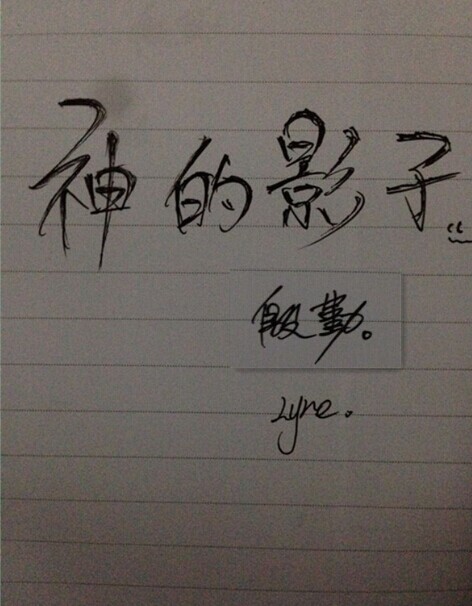 神的影子
殷勤。
Lyne.